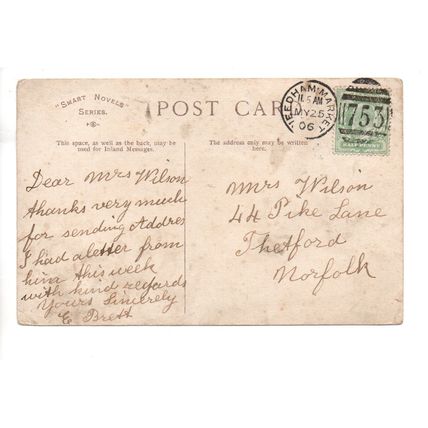 "Smart Novels"
Series.
POST CARD
This space, as well as the back, may be
used for Inland Messages.
The address only may be written
here.
Dear Mrs Wilson
thanks very much
for sending Addres
I had a letter from
him this week
with kind regards
Yours Sincerely
E Brett
Mrs Wilson
44 Pike Lane
Thetford
Norfolk
NEEDHAM-MARKET
11.5 AM
MY 25
06
753
HALFPENNY